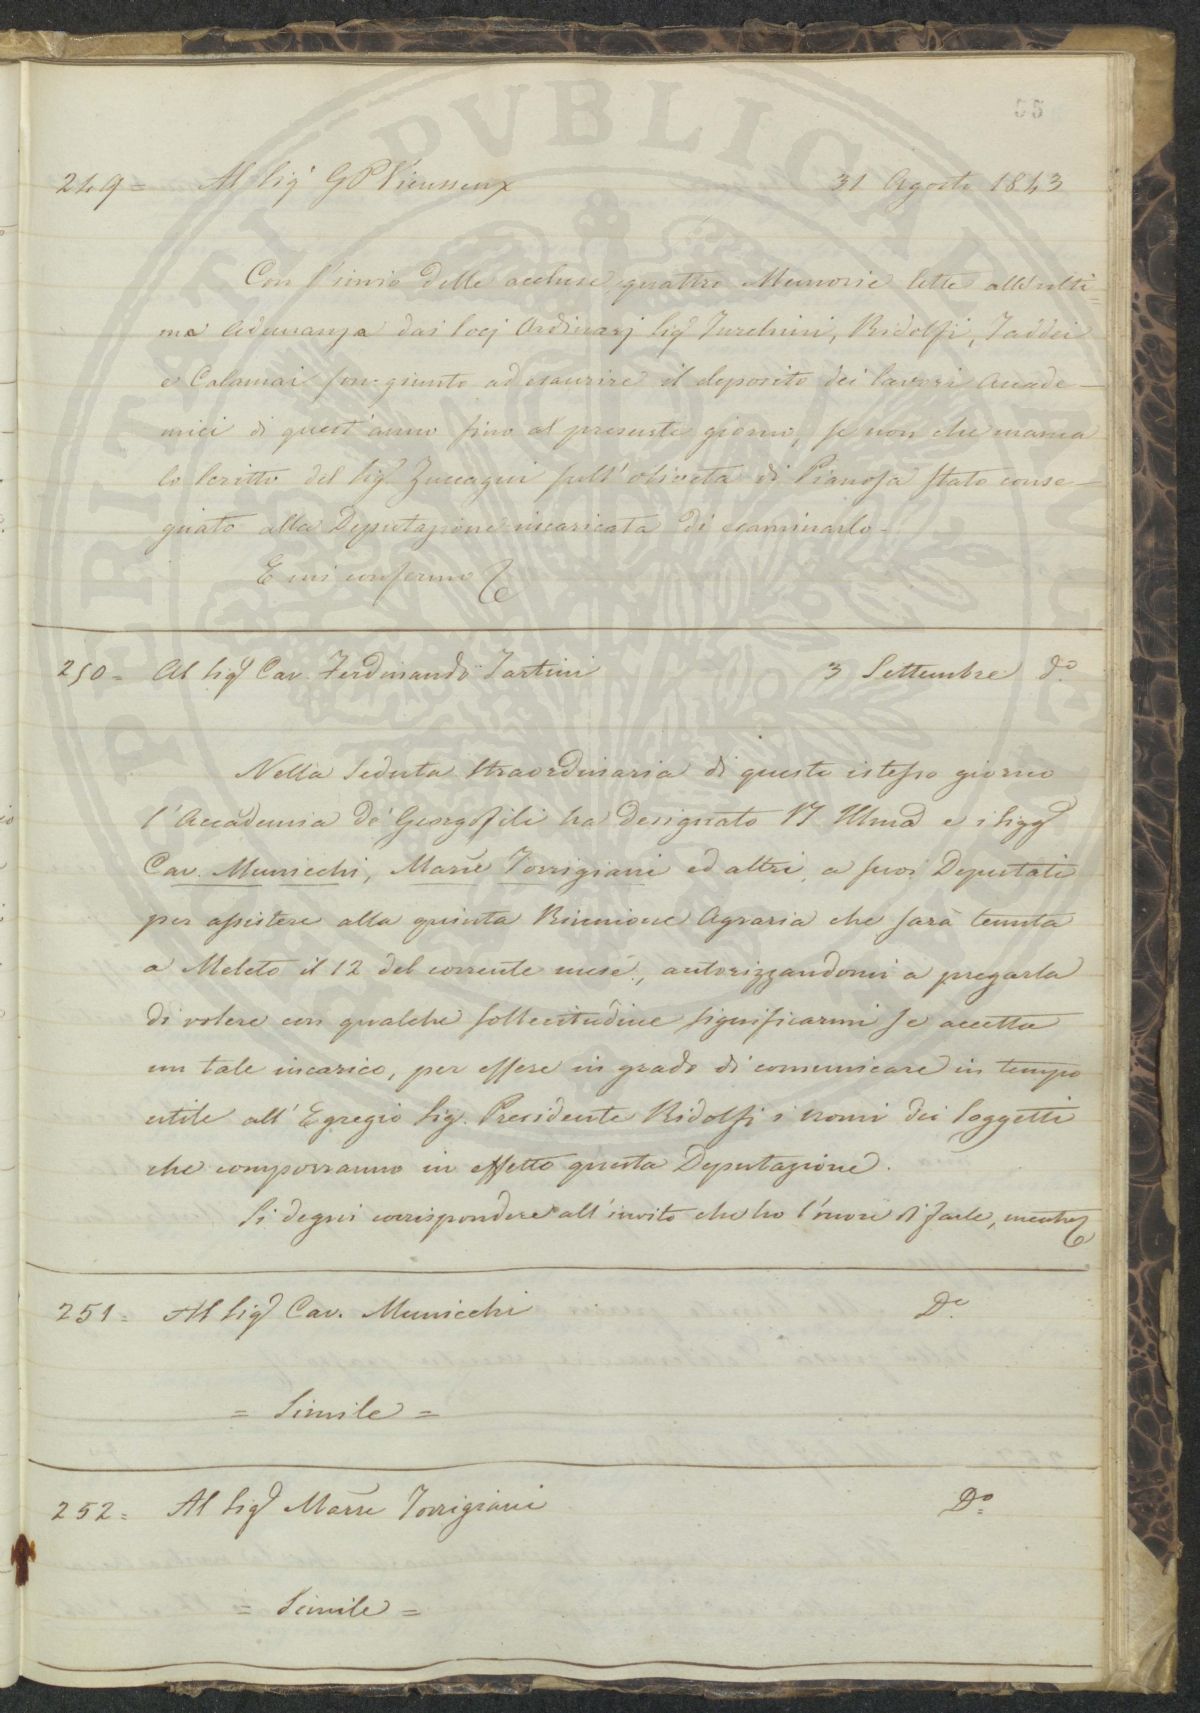 55
249= Al Sigr G P Vieusseux 31 Agosto 1843
Con l'invio delle accluse quattro Memorie lette all'ulti=
ma Adunanza dai Socj Ordinarj Sigri Turchini, Ridolfi, Taddei
e Calamai son giunto ad esaurire il deposito dei lavori Accade-
mici di quest'anno fino al presente giorno, se non che manca
lo Scritto del Sigr Zuccagni sull'oliveta di Pianosa stato conse-
gnato alla Deputazione incaricata di esaminarlo.
E mi confermo
250= Al Sigr Cav. Ferdinando Tartini 3 Settembre do
Nella Seduta Straordinaria di questo istesso giorno
l'Accademia de' Georgofili ha designato VS Illma e i Sigg
Cav. Municchi, Marse Torrigiani ed altri, a suoi Deputati
per assistere alla quinta Riunione Agraria che sarà tenuta
a Meleto il 12 del corrente mese, autorizzandomi a pregarla
di volere con qualche sollecitudine significarmi se accetta
un tale incarico, per essere in grado di comunicare in tempo
utile all'Egregio Sig. Presidente Ridolfi i nomi dei Soggetti
che comporranno in effetto questa Deputazione.
Si degni corrispondere all'invito che ho l'onore di farle, mentre
251= Al Sigr Cav. Municchi Do
= Simile =
252= Al Sigr Marse Torrigiani Do
= Simile =